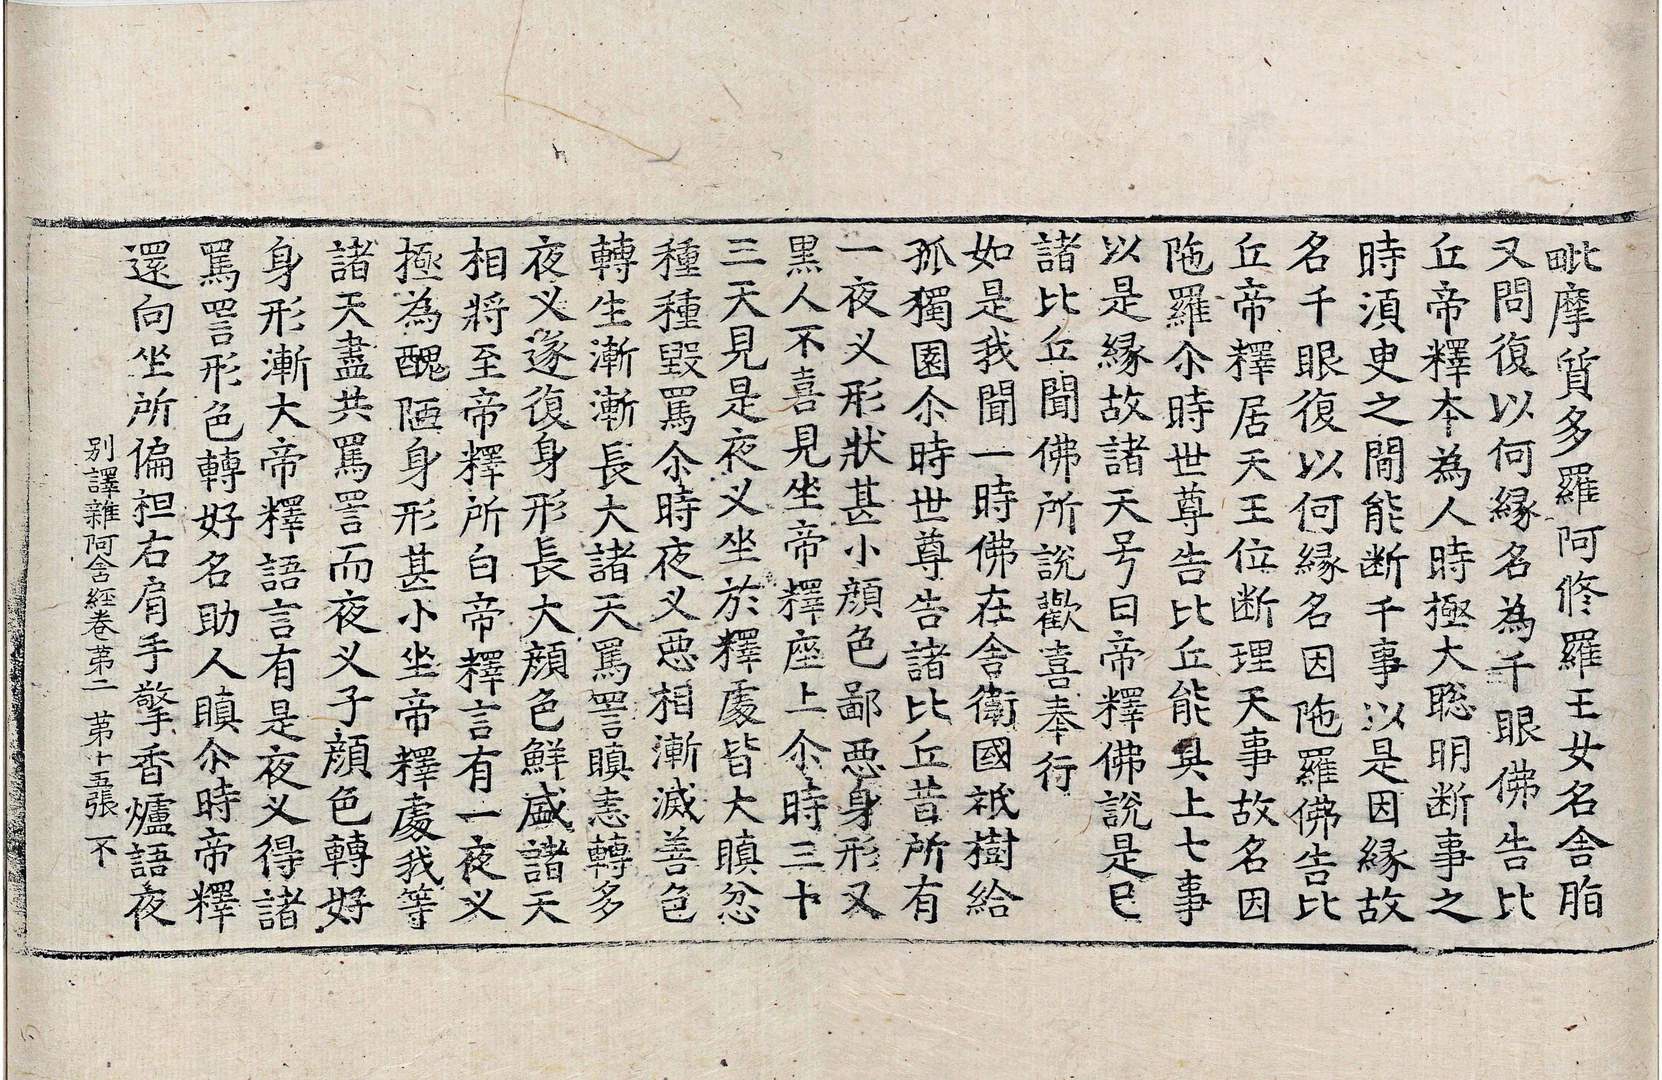 毗摩質多羅阿修羅王女名舍脂
又問復以何縁名為千眼佛告比
丘帝釋夲為人時極大聡明断事之
時湏㬰之閒能断千事以是因縁故
名千眼復以何縁名因陁羅佛告比
丘帝釋居天王位断理天事故名因
陁羅尒時世尊告比丘能具上七事
以是縁故諸天号曰帝釋佛說是已
諸比丘聞佛所說歡喜奉行
如是我聞一時佛在舍衛國祇樹給
孤獨園尒時世尊告諸比丘昔所有
一夜义形狀甚小顔色鄙惡身形又
黒人不喜見坐帝釋座上尒時三十
三天見是夜义坐於釋處皆大瞋忿
種種毀罵尒時夜义惡相漸滅善色
轉生漸漸長大諸天罵詈瞋恚轉多
夜义遂復身形長大顔色鮮盛諸天
相將至帝釋所白帝釋言有一夜义
極為醜陋身形甚小坐帝釋處我等
諸天盡共罵詈而夜义子顔色轉好
身形漸大帝釋語言有是夜义得諸
罵詈形色轉好名助人瞋尒時帝釋
還向坐所偏袒右肩手擎香爐語夜
别譯雜阿含經卷苐二 苐十五張 不